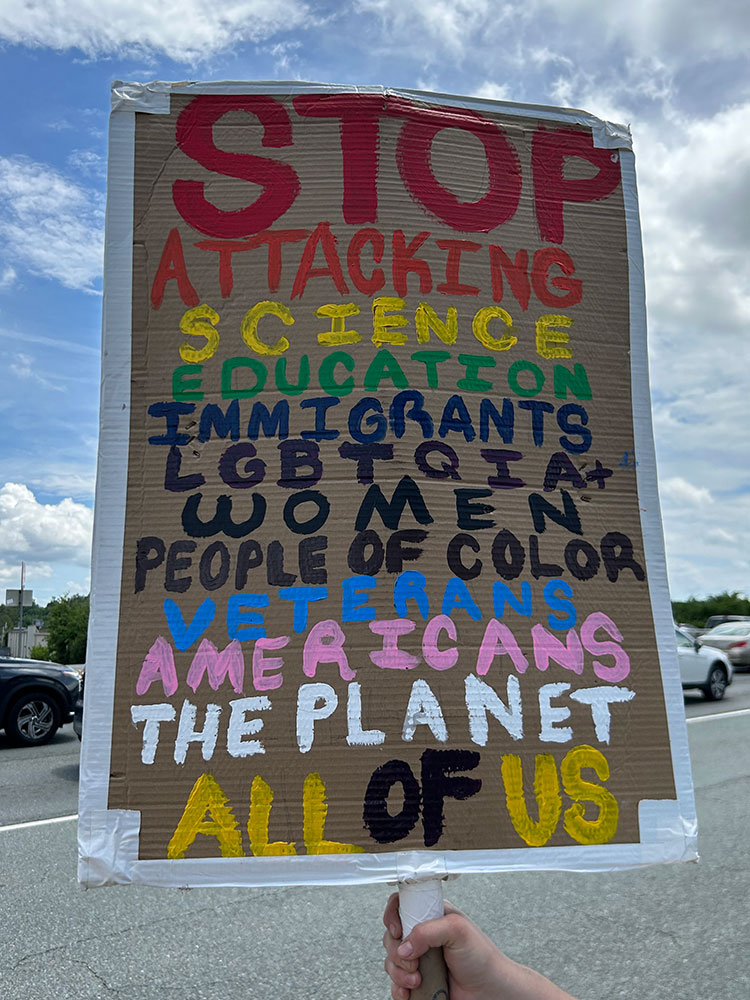 STOP
ATTACKING
SCIENCE
EDUCATION
IMMIGRANTS
LGBTQIA+
WOMEN
PEOPLE OF COLOR
VETERANS
AMERICANS
THE PLANET
ALL OF US